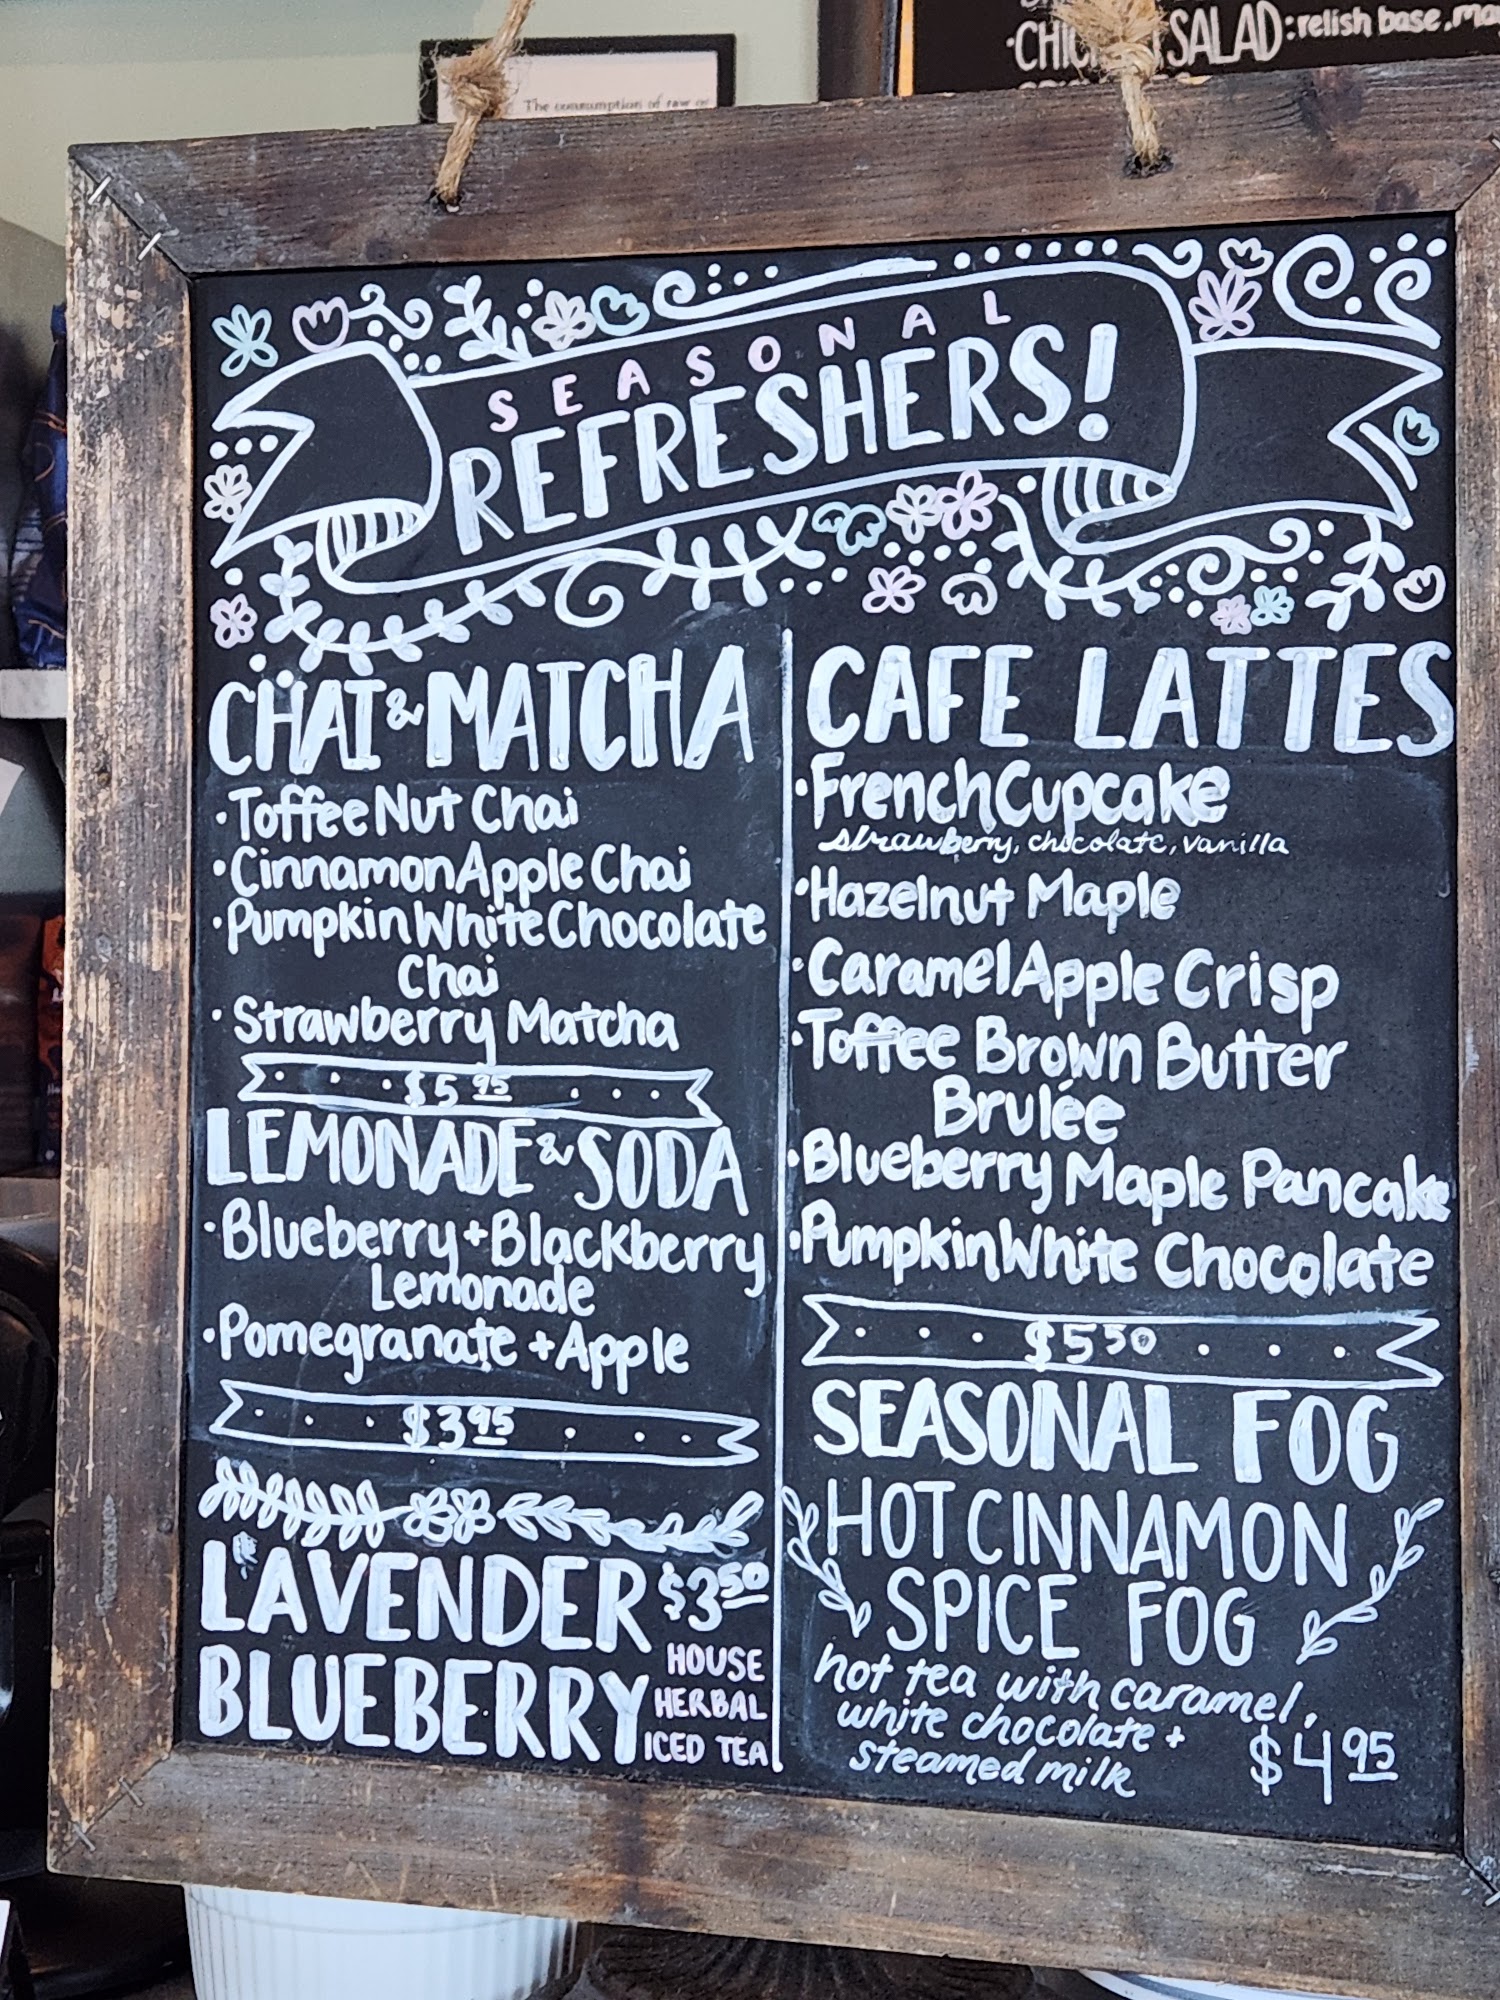 CHICKEN SALAD: relish base, ma
The consumption of raw or
SEASONAL
REFRESHERS!
CHAI & MATCHA
• Toffee Nut Chai
• Cinnamon Apple Chai
• Pumpkin White Chocolate
Chai
• Strawberry Matcha
$5 95
LEMONADE & SODA
• Blueberry + Blackberry
Lemonade
• Pomegranate + Apple
$3 95
LAVENDER $3 50
BLUEBERRY HOUSE
HERBAL
ICED TEA
CAFE LATTES
• French Cupcake
strawberry, chocolate, vanilla
• Hazelnut Maple
• Caramel Apple Crisp
• Toffee Brown Butter
Brulée
• Blueberry Maple Pancake
• Pumpkin White Chocolate
$5 50
SEASONAL FOG
HOT CINNAMON
SPICE FOG
hot tea with caramel,
white chocolate +
steamed milk
$4 95